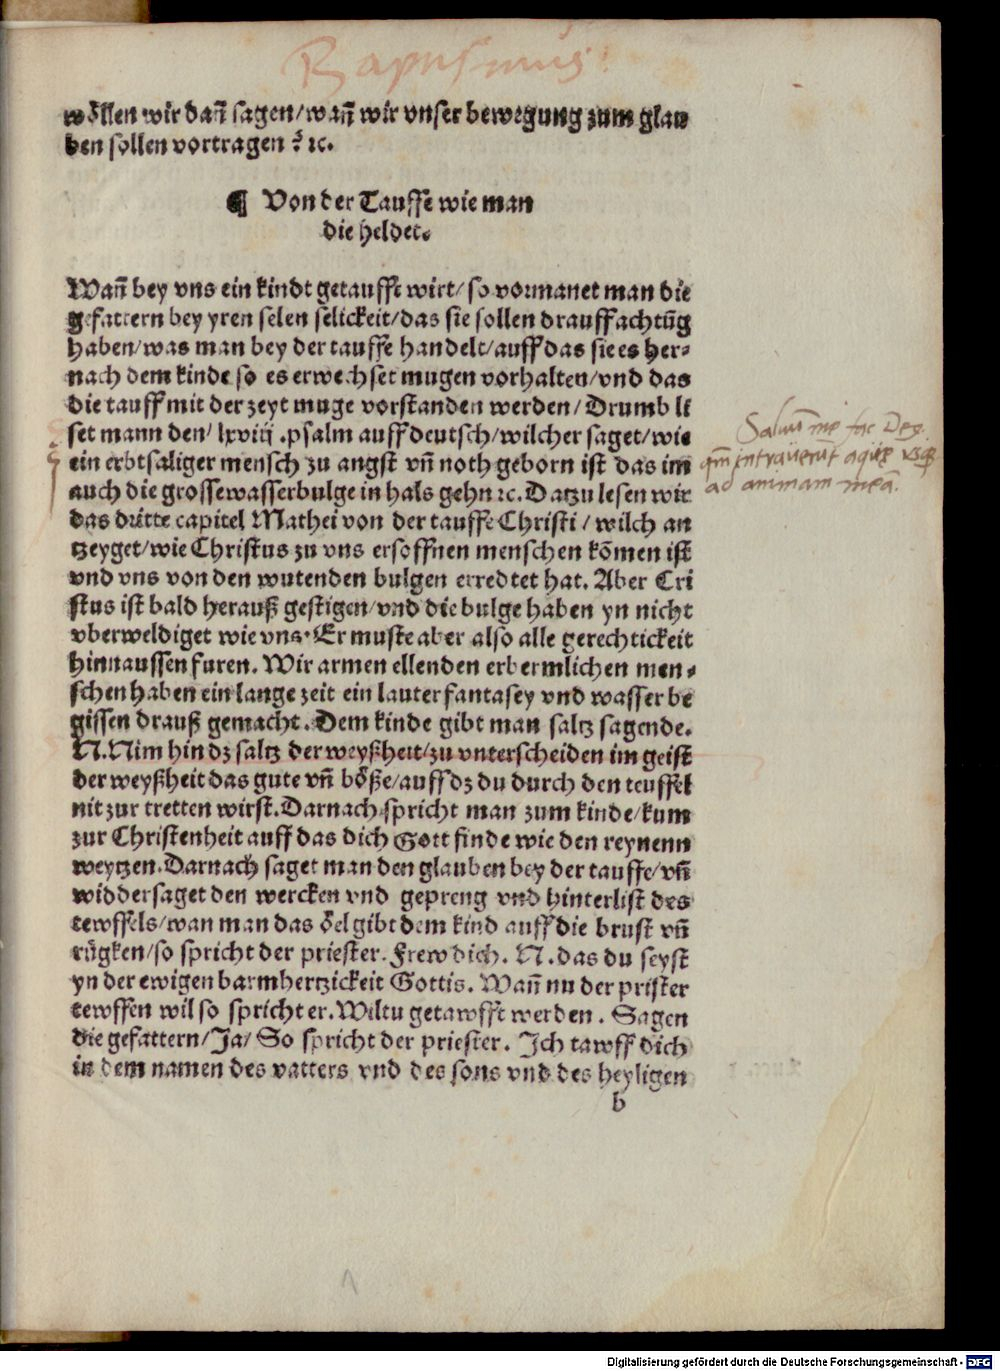 Baptismus.
wöllen wir dañ sagen/wañ wir vnser bewegung zum glau
ben sollen vortragen ꝛc.
¶ Von der Tauffe wie man
die heldet.
Wañ bey vns ein kindt getaufft wirt/so vormanet man die
gefattern bey yren selen selickeit/das sie sollen drauff achtūg
haben/was man bey der tauffe handelt/auff das sie es her⸗
nach dem kinde so es erwechset mugen vorhalten/vnd das
die tauff mit der zeyt muge vorstanden werden/Drumb li
set mann den/lxviij.psalm auff deutsch/wilcher saget/wie
ein erbtsaliger mensch zu angst vñ noth geborn ist das im
auch die grosse wasserbulge in hals gehn ꝛc. Datzu lesen wir
das dritte capitel Mathei von der tauffe Christi/wilch an
tzeyget/wie Christus zu vns ersoffnen menschen kōmen ist
vnd vns von den wutenden bulgen erredtet hat. Aber Cri
stus ist bald herauß gestigen/vnd die bulge haben yn nicht
vberweldiget wie vns. Er muste aber also alle gerechtickeit
hinnaussen furen. Wir armen ellenden erbermlichen men⸗
schen haben ein lange zeit ein lauter fantasey vnd wasser be
gissen drauß gemacht. Dem kinde gibt man saltz sagende.
N. Nim hin dz saltz der weyßheit/zu vnterscheiden im geist
der weyßheit das gute vñ böße/auff dz du durch den teuffel
nit zur tretten wirst. Darnach spricht man zum kinde/kum
zur Christenheit auff das dich Gott finde wie den reynenn
weytzen. Darnach saget man den glauben bey der tauffe/vñ
widdersaget den wercken vnd gepreng vnd hinterlist des
tewffels/wan man das öel gibt dem kind auff die brust vñ
rügken/so spricht der priester. Frew dich. N. das du seyst
yn der ewigen barmhertzickeit Gottis. Wañ nu der prister
tewffen wil so spricht er. Wiltu getawfft werden. Sagen
die gefattern/Ja/So spricht der priester. Ich tawff dich
in dem namen des vatters vnd des sons vnd des heyligen
b
Saluū me fac De9
qm̄ intrauerūt aque vsq
ad animam meā.
Digitalisierung gefördert durch die Deutsche Forschungsgemeinschaft - DFG